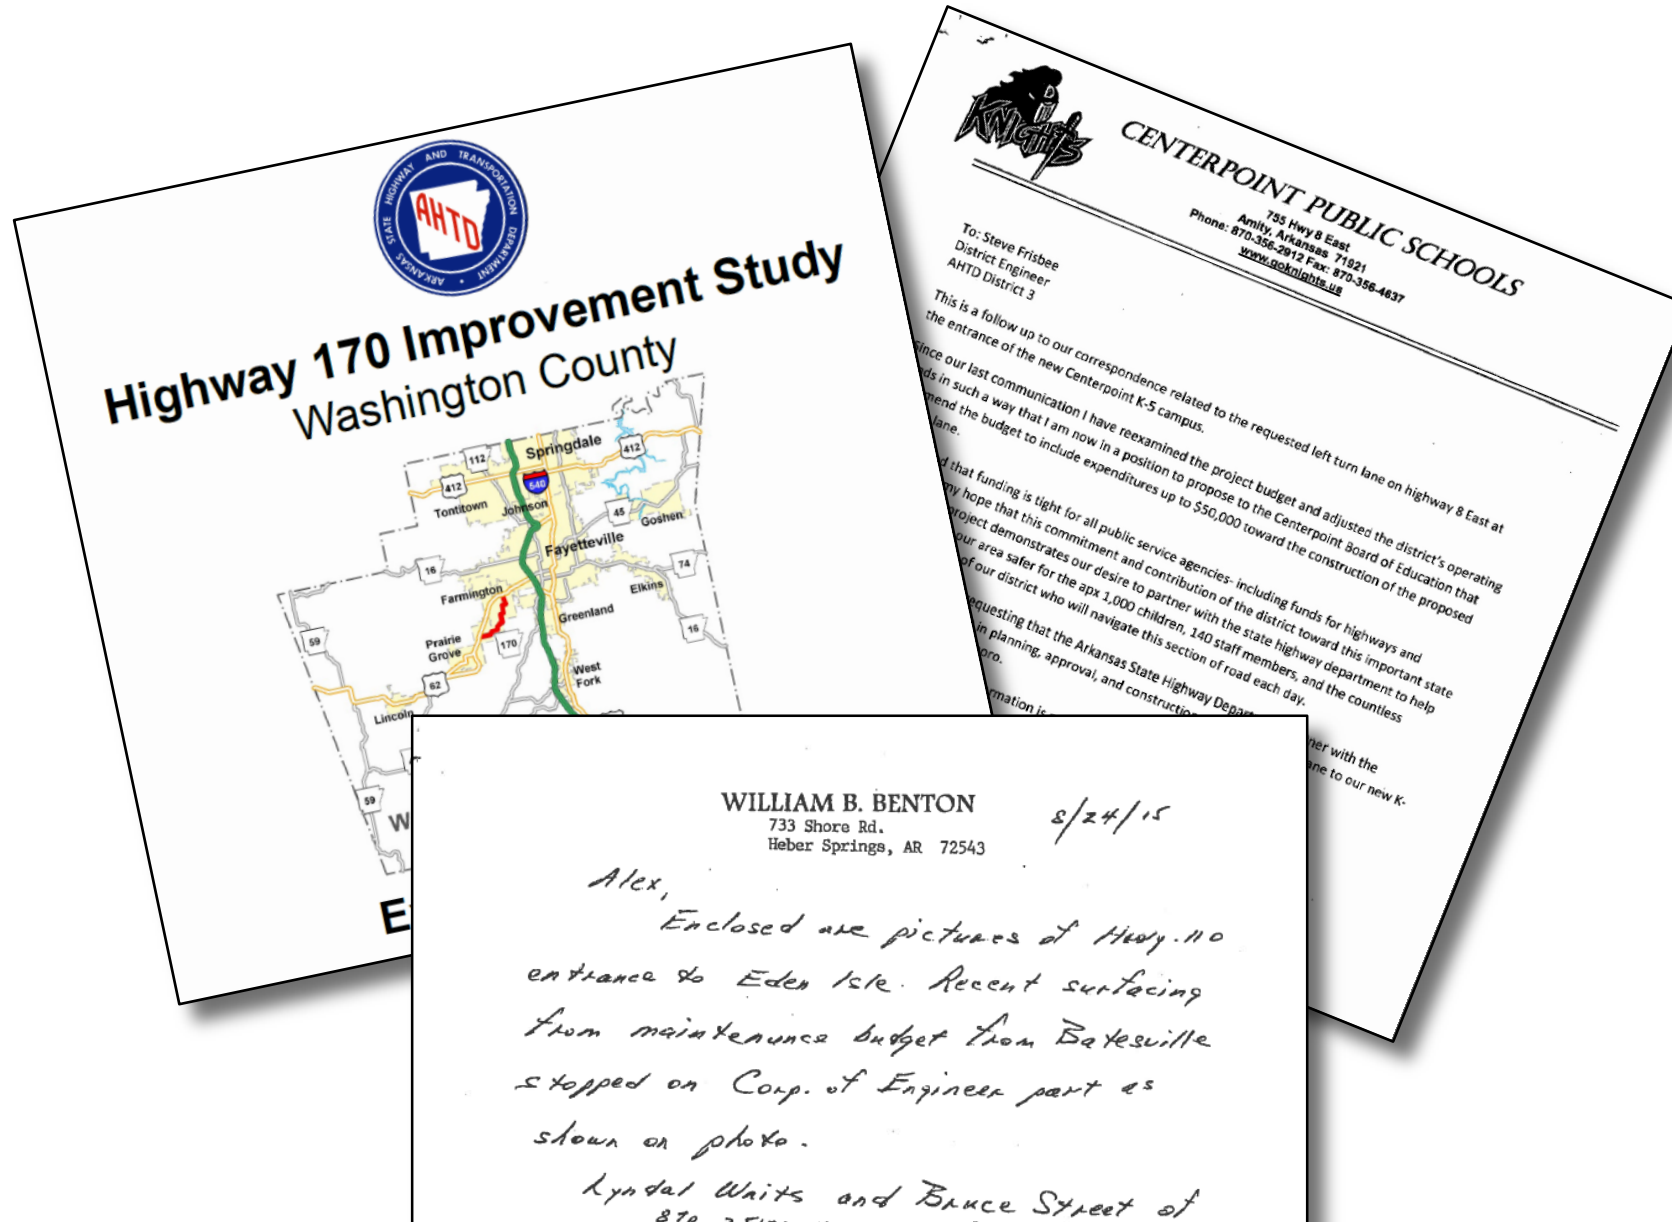 ARKANSAS STATE HIGHWAY AND TRANSPORTATION DEPARTMENT
AHTD
Highway 170 Improvement Study
Washington County
Springdale
112
412
412
540
Tontitown
Johnson
45
Goshen
Fayetteville
16
74
Farmington
Elkins
Greenland
59
16
Prairie
Grove
170
62
West
Fork
Lincoln
59
W
E
KNIGHTS
CENTERPOINT PUBLIC SCHOOLS
755 Hwy 8 East
Amity, Arkansas 71921
Phone: 870-356-2912 Fax: 870-356-4637
www.goknights.us
To: Steve Frisbee
District Engineer
AHTD District 3
This is a follow up to our correspondence related to the requested left turn lane on highway 8 East at
the entrance of the new Centerpoint K-5 campus.
since our last communication I have reexamined the project budget and adjusted the district's operating
ds in such a way that I am now in a position to propose to the Centerpoint Board of Education that
mend the budget to include expenditures up to $50,000 toward the construction of the proposed
lane.
d that funding is tight for all public service agencies- including funds for highways and
my hope that this commitment and contribution of the district toward this important state
project demonstrates our desire to partner with the state highway department to help
our area safer for the apx 1,000 children, 140 staff members, and the countless
of our district who will navigate this section of road each day.
equesting that the Arkansas State Highway Depart
ner with the
in planning, approval, and construction
ane to our new K-
oro.
rmation is
WILLIAM B. BENTON
733 Shore Rd.
Heber Springs, AR 72543
8/24/15
Alex,
Enclosed are pictures of Hwy. 110
entrance to Eden Isle. Recent surfacing
from maintenance budget from Batesville
stopped on Corp. of Engineer part as
shown on photo.
Lyndal Waits and Bruce Street of
870